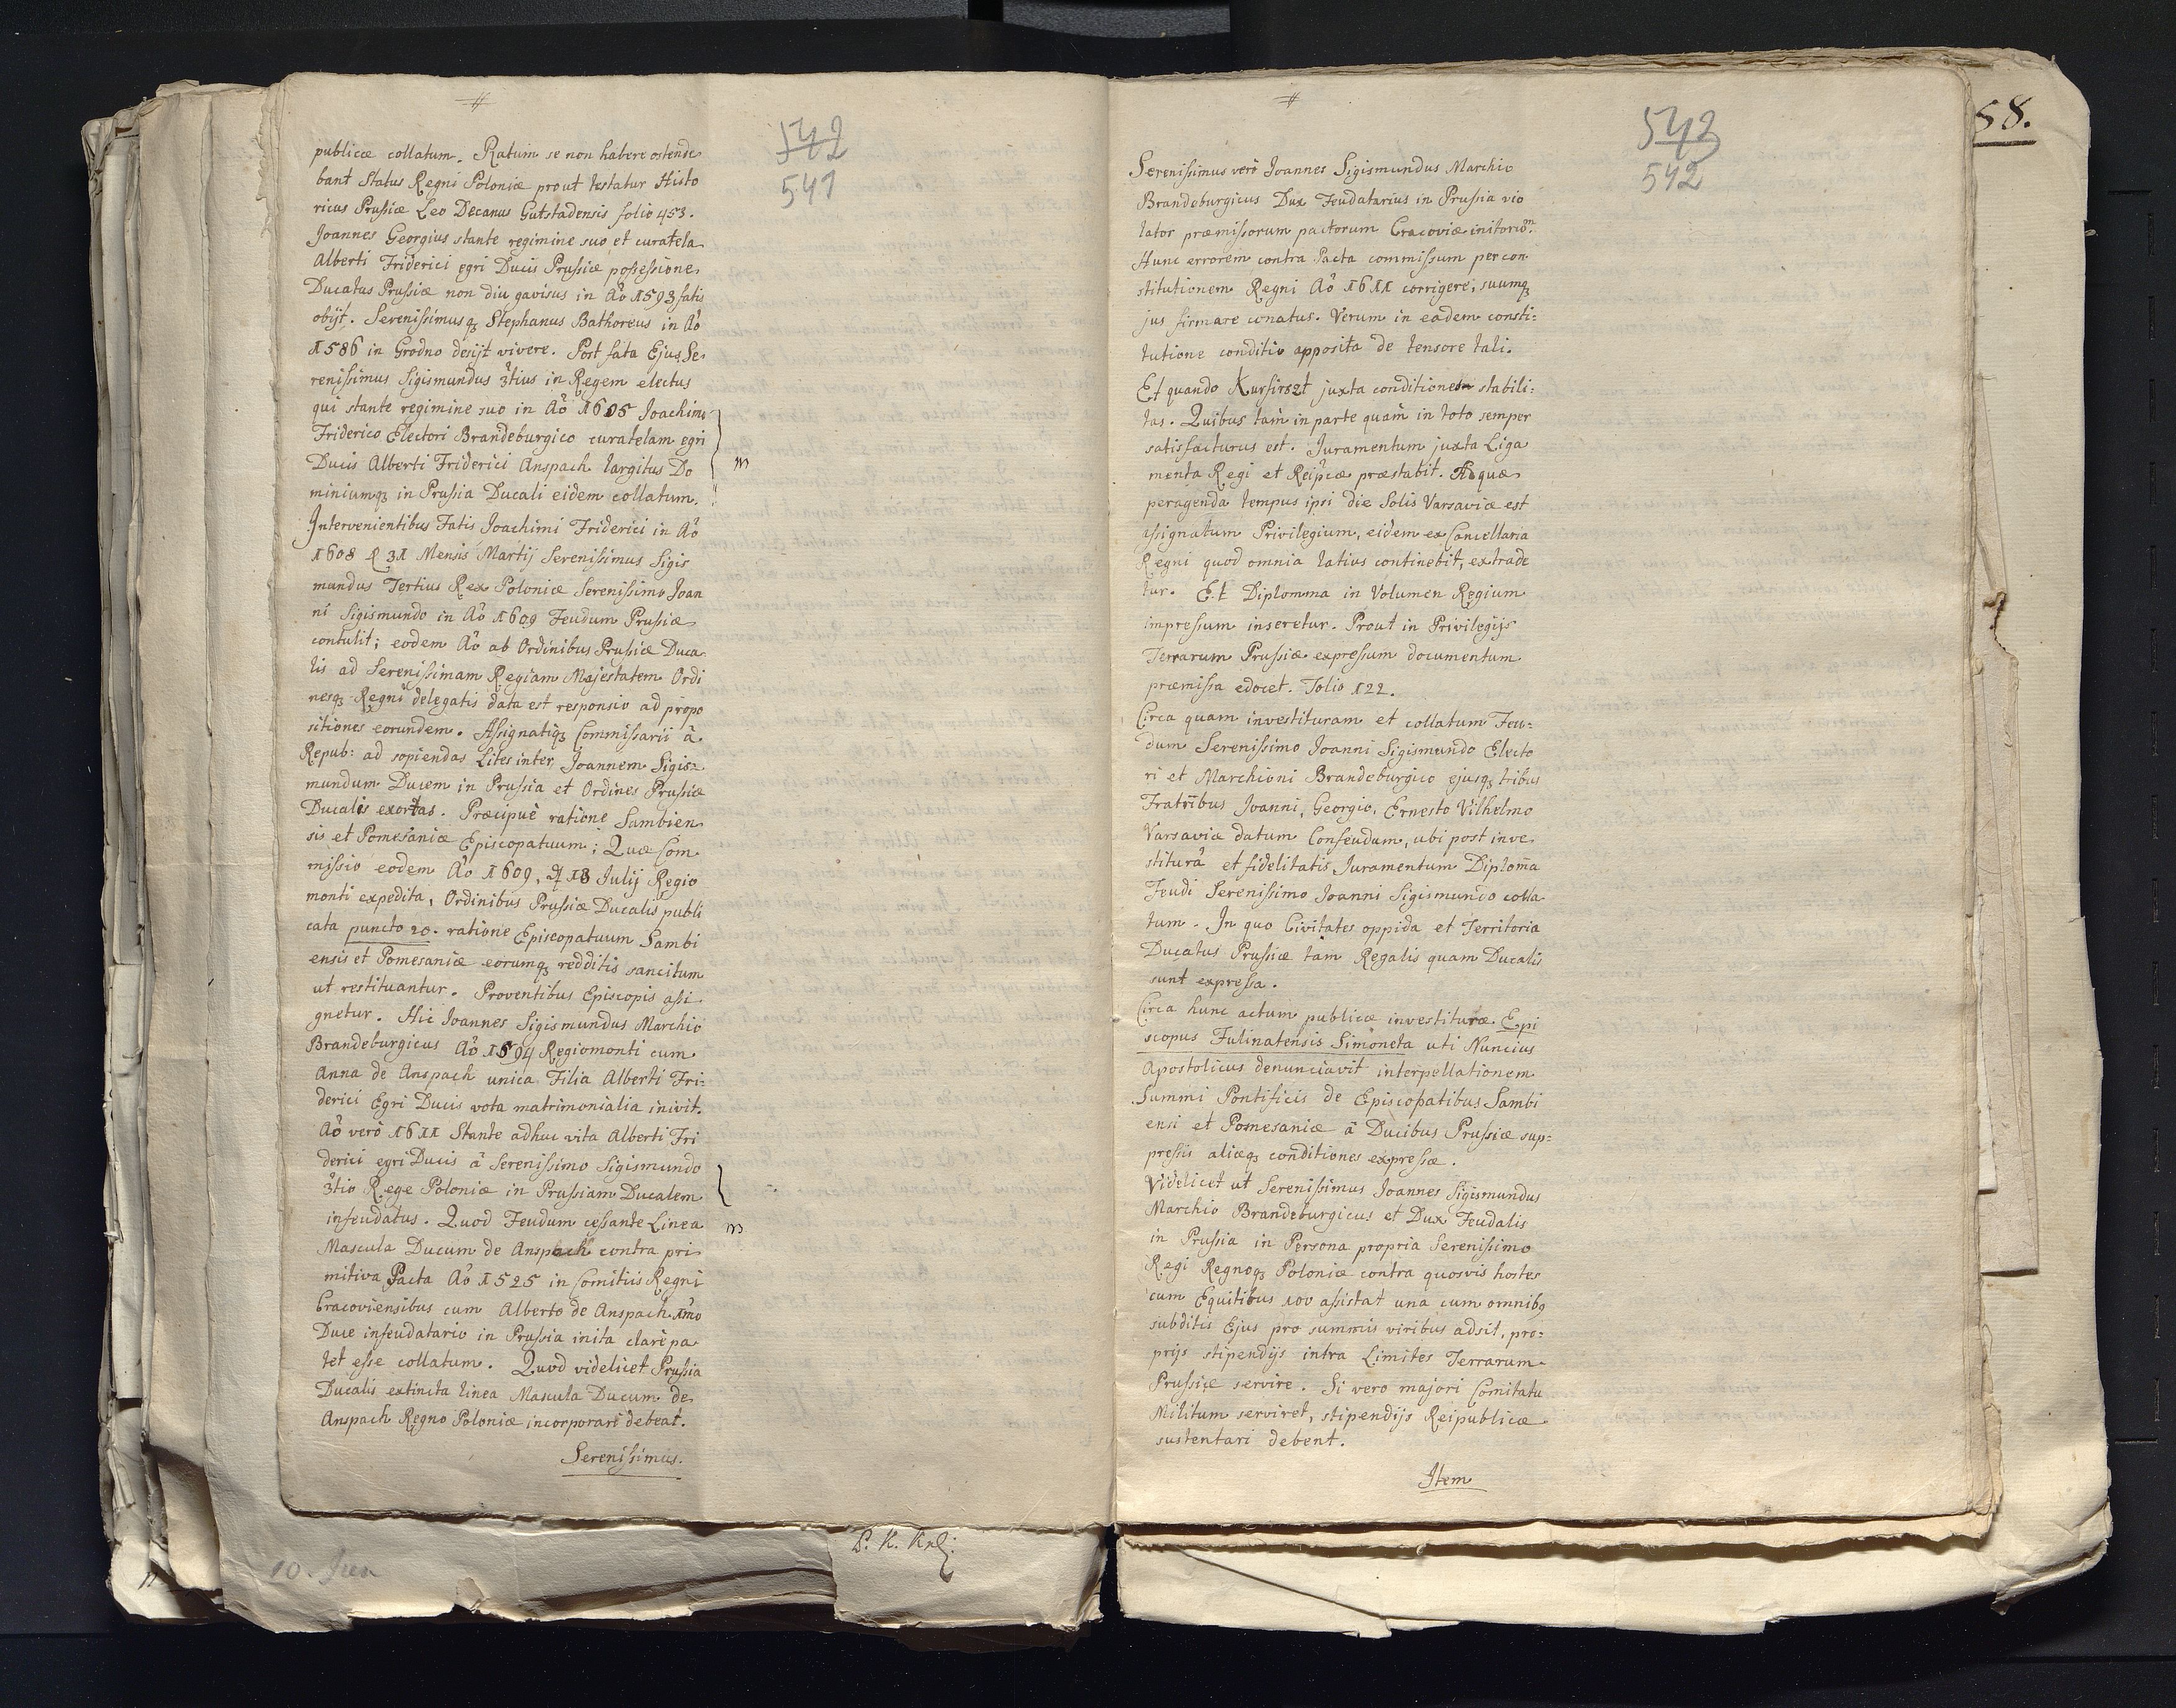 #
542
541
publicæ collatum. Ratum se non habere ostende
bant Status Regni Poloniæ prout testatur Histo
ricus Prussiæ Leo Decanus Gutstadensis folio 453.
Joannes Georgius stante regimine suo et curatela
Alberti Friderici egri Ducis Prussiæ possessione
Ducatus Prussiæ non diu gavisus in Aō 1593 fatis
obijt. Serenissimusq Stephanus Bathoreus in Aō
1586 in Grodno desijt vivere. Post fata Ejus Se
renissimus Sigismundus 3tius in Regem electus
qui stante regimine suo in Aō 1605 Joachimo
Friderico Electori Brandeburgico curatelam egri
Ducis Alberti Friderici Anspach largitus Do
miniumq in Prussia Ducali eidem collatum.
Intervenientibus Fatis Joachimi Friderici in Aō
1608 31 Mensis Martij Serenissimus Sigis
mundus Tertius Rex Poloniæ Serenissimo Joan
ni Sigismundo in Aō 1609 Feudum Prussiæ
contulit; eodem Aō ab Ordinibus Prussiæ Duca
lis ad Serenissimam Regiam Majestatem Ordi
nesq Regni delegatis data est responsio ad propo
sitiones eorundem. Assignatiq Commissarii â
Repub: ad sopiendas Lites inter Joannem Sigis=
mundum Ducem in Prussia et Ordines Prussiæ
Ducalis exortas. Præcipuè ratione Sambien
sis et Pomesaniæ Episcopatuum; Quæ Com
missio eodem Aō 1609, 18 Julij Regio
monti expedita, Ordinibus Prussiæ Ducalis publi
cata puncto 20. ratione Episcopatuum Sambi
ensis et Pomesaniæ eorumq redditis sancitum
ut restituantur. Proventibus Episcopis assi
gnetur. Hic Joannes Sigismundus Marchio
Brandeburgicus Aō 1594 Regiomonti cum
Anna de Anspach unica Filia Alberti Fri=
derici Egri Ducis vota matrimonialia inivit.
Aō verò 1611 Stante adhuc vita Alberti Fri
derici egri Ducis â Serenissimo Sigismundo
3tio Rege Poloniæ in Prussiam Ducalem
infeudatus. Quod Feudum cessante Linea
Mascula Ducum de Anspach contra pri
mitiva Pacta Aō 1525 in Comitiis Regni
Cracoviensibus cum Alberto de Anspach 1mo
Duce infeudatario in Prussia inita clarè pa
tet esse collatum. Quod videlicet Prussia
Ducalis extincta linea Mascula Ducum de
Anspach Regno Poloniæ incorporari debeat.
Serenissimus.
10.
P. K.
#
542
542
58.
Serenissimus verò Joannes Sigismundus Marchio
Brandeburgicus Dux Feudatarius in Prussia vio
lator præmissorum pactorum Cracoviæ initorum
Hunc errorem contra Pacta commissum per con
stitutionem Regni Aō 1611 corrigere, suumq
jus firmare conatus. Verum in eadem consti=
tutione conditio apposita de tensore tali.
Et quando Kurfirszt juxta conditiones stabili=
tas. Quibus tam in parte quam in toto semper
satisfacturus est. Juramentum juxta Liga
menta Regi et Reipcæ præstabit. Ad quæ
peragenda tempus ipsi die Solis Varsaviæ est
assignatum Privilegium, eidem ex Cancellaria
Regni quod omnia latius continebit, extrade
tur. Et Diplomma in Volumen Regium
impressum inseretur. Prout in Privilegijs
Terrarum Prussiæ expressum documentum
præmissa edocet. Folio 122.
Circa quam investituram et collatum Feu=
dum Serenissimo Joanni Sigismundo Electo
ri et Marchioni Brandeburgico ejusq tribus
Fratribus Joanni, Georgio, Ernesto Vilhelmo
Varsaviæ datum Confeudum, ubi post inve
stiturā et fidelitatis Juramentum Diplom̄a
Feudi Serenissimo Joanni Sigismundo colla
tum. In quo Civitates oppida et Territoria
Ducatus Prussiæ tam Regalis quam Ducalis
sunt expressa.
Circa hunc actum publicæ investituræ Epi
scopus Fulinatensis Simoneta uti Nuncius
Apostolicus denunciavit interpellationem
Summi Pontificis de Episcopatibus Sambi
ensi et Pomesaniæ â Ducibus Prussiæ sup=
pressis aliæq conditiones expressæ.
Videlicet ut Serenissimus Joannes Sigismundus
Marchio Brandeburgicus et Dux Feudalis
in Prussia in Persona propria Serenissimo
Regi Regnoq Poloniæ contra quosvis hostes
cum Equitibus 100 assistat una cum omnibq
subditis Ejus pro summis viribus adsit, pro=
prijs stipendijs intra Limites Terrarum
Prussiæ servire. Si vero majori Comitatu
Militum serviret, stipendijs Reipublicæ
sustentari debent.
Item